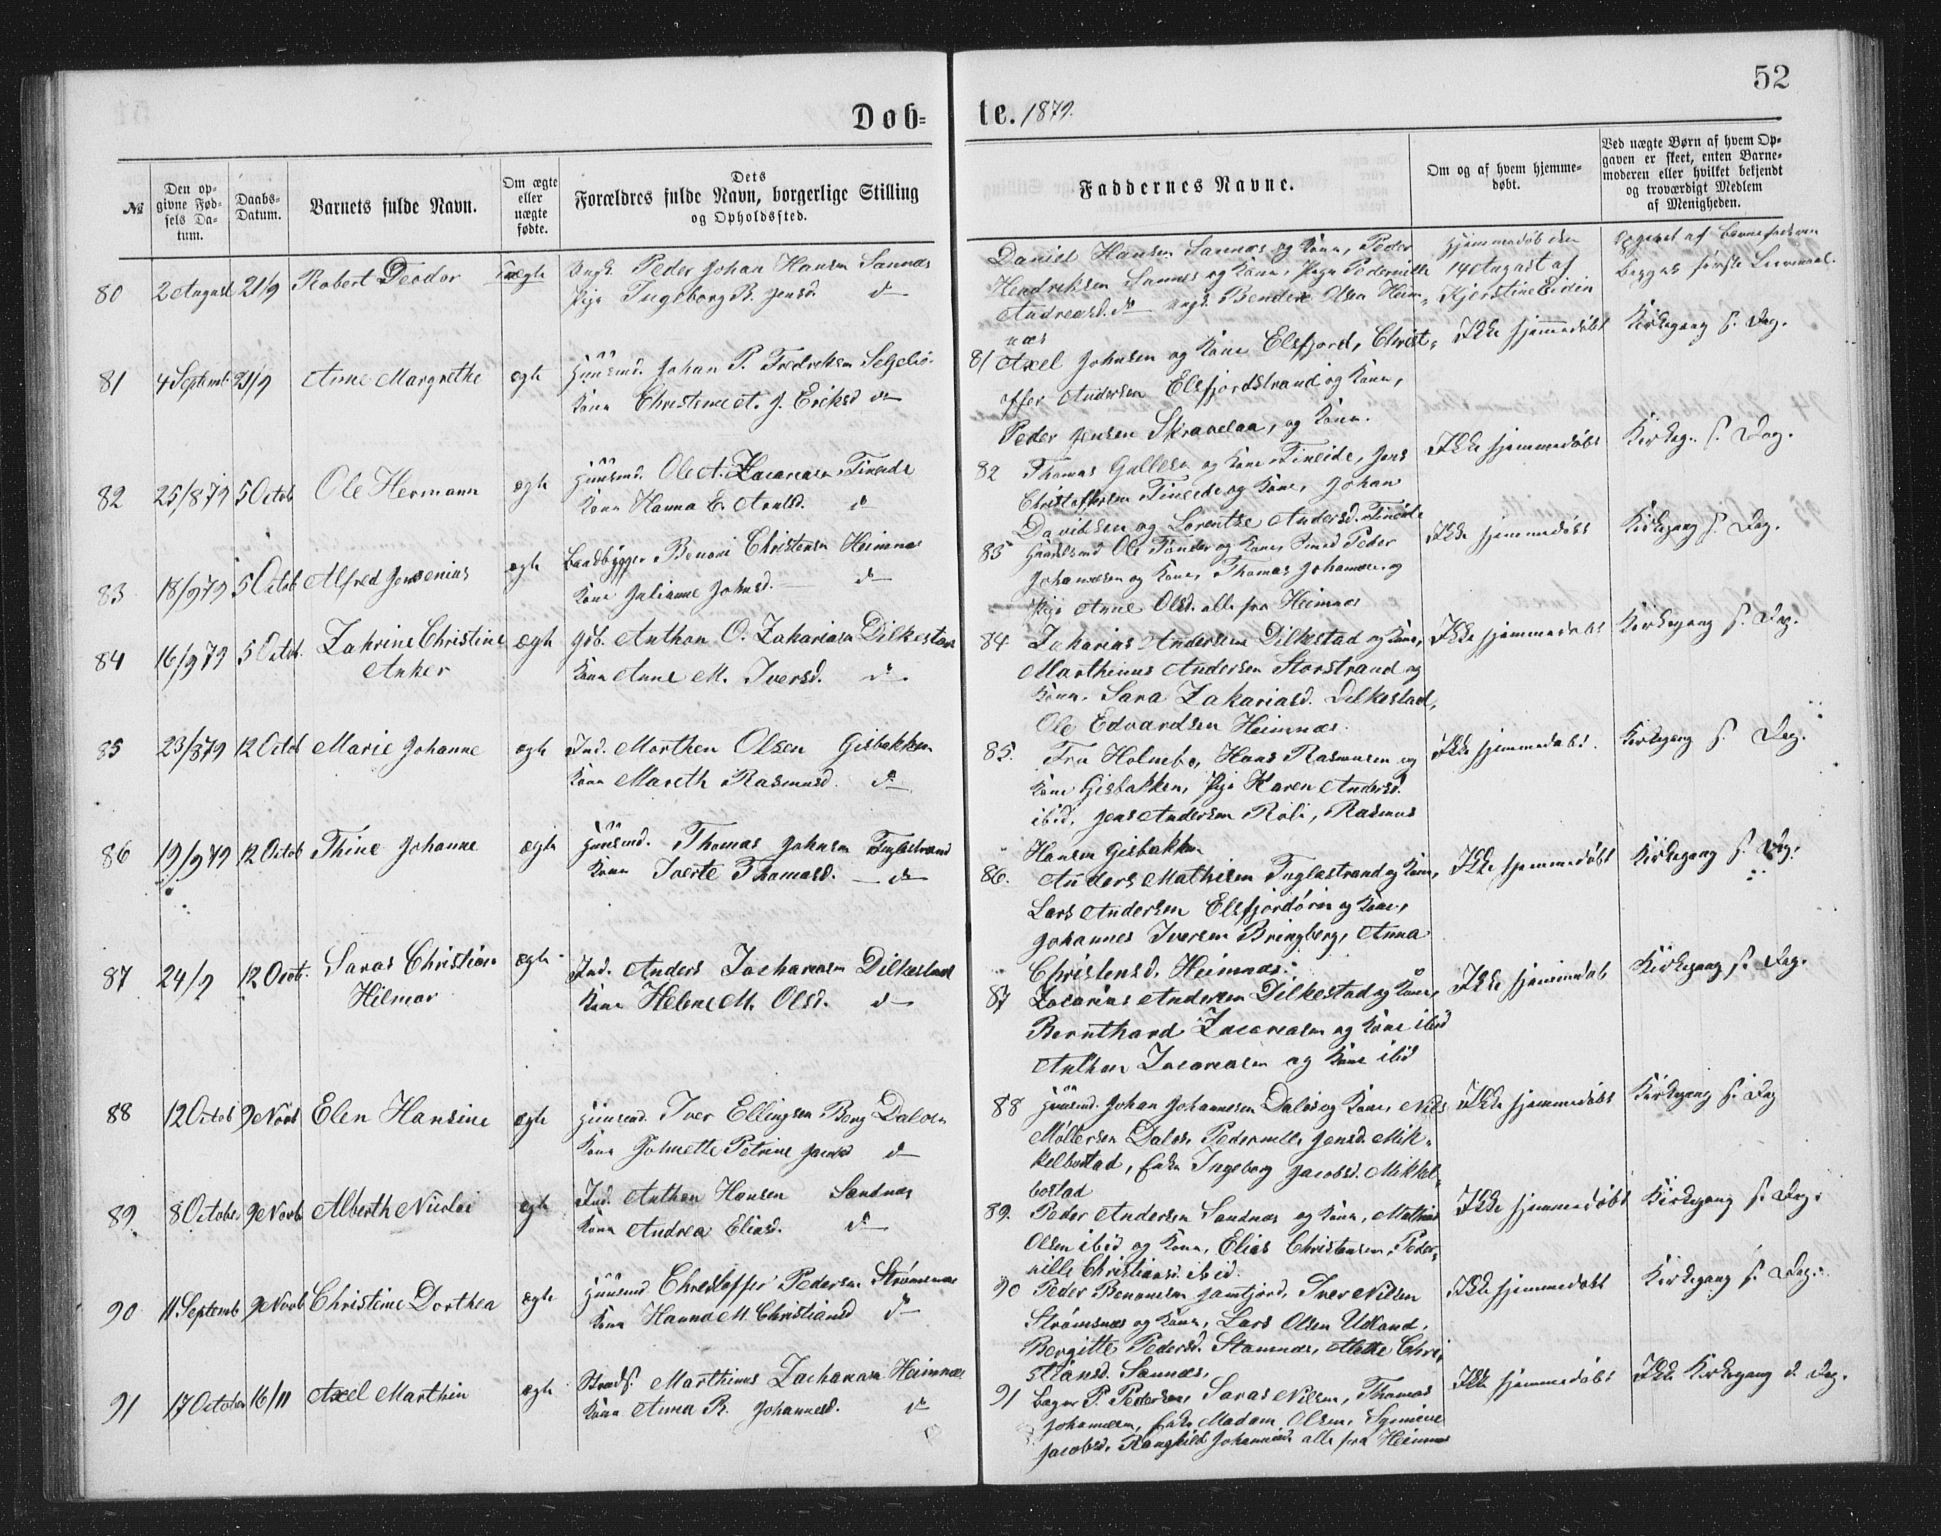 52
Døb=
te. 1879.
№
Den opgivne Fødsels Datum.
Daabs-Datum.
Barnets fulde Navn.
Om ægte eller uægte fødte.
Dets Forældres fulde Navn, borgerlige Stilling og Opholdssted.
Faddernes Navne.
Om og af hvem hjemmedøbt.
Ved uægte Børn af hvem Opgaven er skeet, enten Barnemoderen eller hvilket bekjendt og troværdigt Medlem af Menigheden.
80 2 August 21/9 Robert Deodor uægte Ungk. Peder Johan Hansen Sannæs
Pige Ingeborg B. Jensd. do
Daniel Hansen Sannæs og Kone, Peder
Hendriksen Sannes og Kone, Pige Pedernille
Andreasd. do Ungk. Bendix Olsen Heim-
næs
Hjemmedøb den
14 August af
Kjerstine Eidin
Opgivet af Barnefaderen
Begges første Leiermaal.
81 4 Septemb 21/9 Anne Margrethe ægte Huusmd. Johan P. Fredriksen
Kone Christine A. J. Eriksd do
81 Axel Johnsen og Kone Elsfjord, Christ-
offer Andersen Elsfjordstrand og Kone,
Peder Jensen Skravelaa, og Kone.
Ikke hjemmedøbt Kirkegang s. Dag.
82 25/8 79 5 Octob Ole Hermann ægte Huusmd. Ole A. Zacariasen Fineide
Kone Hanna E. do
82 Thomas Gullesen og Kone Fineide, Jens
Christoffersen Fineide og Kone, Johan
Davidsen og Lorentse Andersd. Fineide
Ikke hjemmedøbt Kirkeg. s. Dag.
83 18/9 79 5 Octob Alfred Jensenius ægte Landbygger Benoni Christensen Heimnæs
Kone Julianne Johnsd. do
83 Huusmd Ole og Kone, Peder
Johannesen og Kone, Thomas Johannesen og
Pige Anne Olsd. alle fra Heimnæs
Ikke hjemmedøbt Kirkegang s. Dag.
84 16/9 79 5 Octob. Zahrine Christine ægte Gdb. Anthon O. Zakariasen Dilkestad
Anker Kone Anne M. Iversd. do
84 Zakarias Andersen Dilkestad og Kone,
Marthinus Andersen Storstrand og
Kone. Sara Zakariasd. Dilkestad,
Ole Edvardsen Heimnæs.
Ikke hjemmedøbt Kirkegang s. Dag.
85 23/8 79 12 Octob Marie Johanne ægte Ind. Morthen Olsen Gisbakken
Kone Mareth Rasmusd. do
85. Fru Holmbo, Hans Rasmusen og
Kone Gisbakken, Pige Karen Andersd.
ibid. Jens Andersen Roli, Rasmus
Hansen Gisbakken
Ikke hjemmedøbt. Kirkegang s. Dag.
86 19/9 79 12 Octob Thine Johanne ægte Huusmd. Thomas Johnsen Fuglestrand
Kone Iverte Thomasd. do
86. Anders Mathisen Fuglestrand og Kone,
Lars Andersen Elsfjordøren og Kone,
Johannes Iversen Bringberg, Anna
Christensd. Heimnæs.
Ikke hjemmedøbt Kirkegang s. Dag.
87 24/9 12 Octb. Saras Christian ægte Ind. Anders Zachariasen Dilkestad
Hilmar Kone Helene M. Olsd. do
87 Zacarias Andersen Dilkestad og Kone,
Bernthard Zacariasen og Kone ibid
Anthon Zacariasen og Kone ibid
Ikke hjemmedøb Kirkegang s. Dag.
88 12 Octob 9 Novb Elen Hansine ægte Huusmd. Iver Ellingsen Berg Dalosen
Kone Johnette Petrine Jacobsd do
88 Huusmd. Johan Johannesen Dalos og Kone, Nils
Møllersen Dalos. Pedernelle Jensd. Mik-
kelbostad, Enke Ingeborg Jacobsd. Mikkel-
bostad
Ikke hjemmedøbt Kirkegang s. Dag
89 8 October 9 Novb Alberth Nicolai ægte Ind. Anthon Hansen Sandnæs
Kone Andrea Eliasd. do
89. Peder Andersen Sandnæs og Kone, Mathias
Olsen ibid og Kone, Elias Christensen, Peder-
nille Christiansd. ibid.
Ikke hjemmedøbt Kirkegang s. Dag.
90 11 Septemb 9 Novb Christine Dorthea ægte Huusmd Christoffer Pedersen Strømsnæs
Kone Hanna M. Christiansd do
90 Peder Benonisen Jamtjord, Iver Nilsen
Strømsnæs og Kone, Lars Olsen Utland.
Bergitte Pedersd. Stamnæs, Chri-
stiansd. Sannæs.
Ikke hjemmedøbt Kirkegang s. Dag.
91 17 October 16/11 Axel Marthin ægte Strands. Marthinus Zachariasen Heimnæs
Kone Anna B. Johannesd. do
91 P. Pedersen, Saras Nilsen, Thomas
Johannesen, Enke Madam Olsen,
Jacobsd. Ranghild Johannesd. alle fra Heimnæs
Ikke hjemmedøbt Ikke Kirkegang s. Dag.